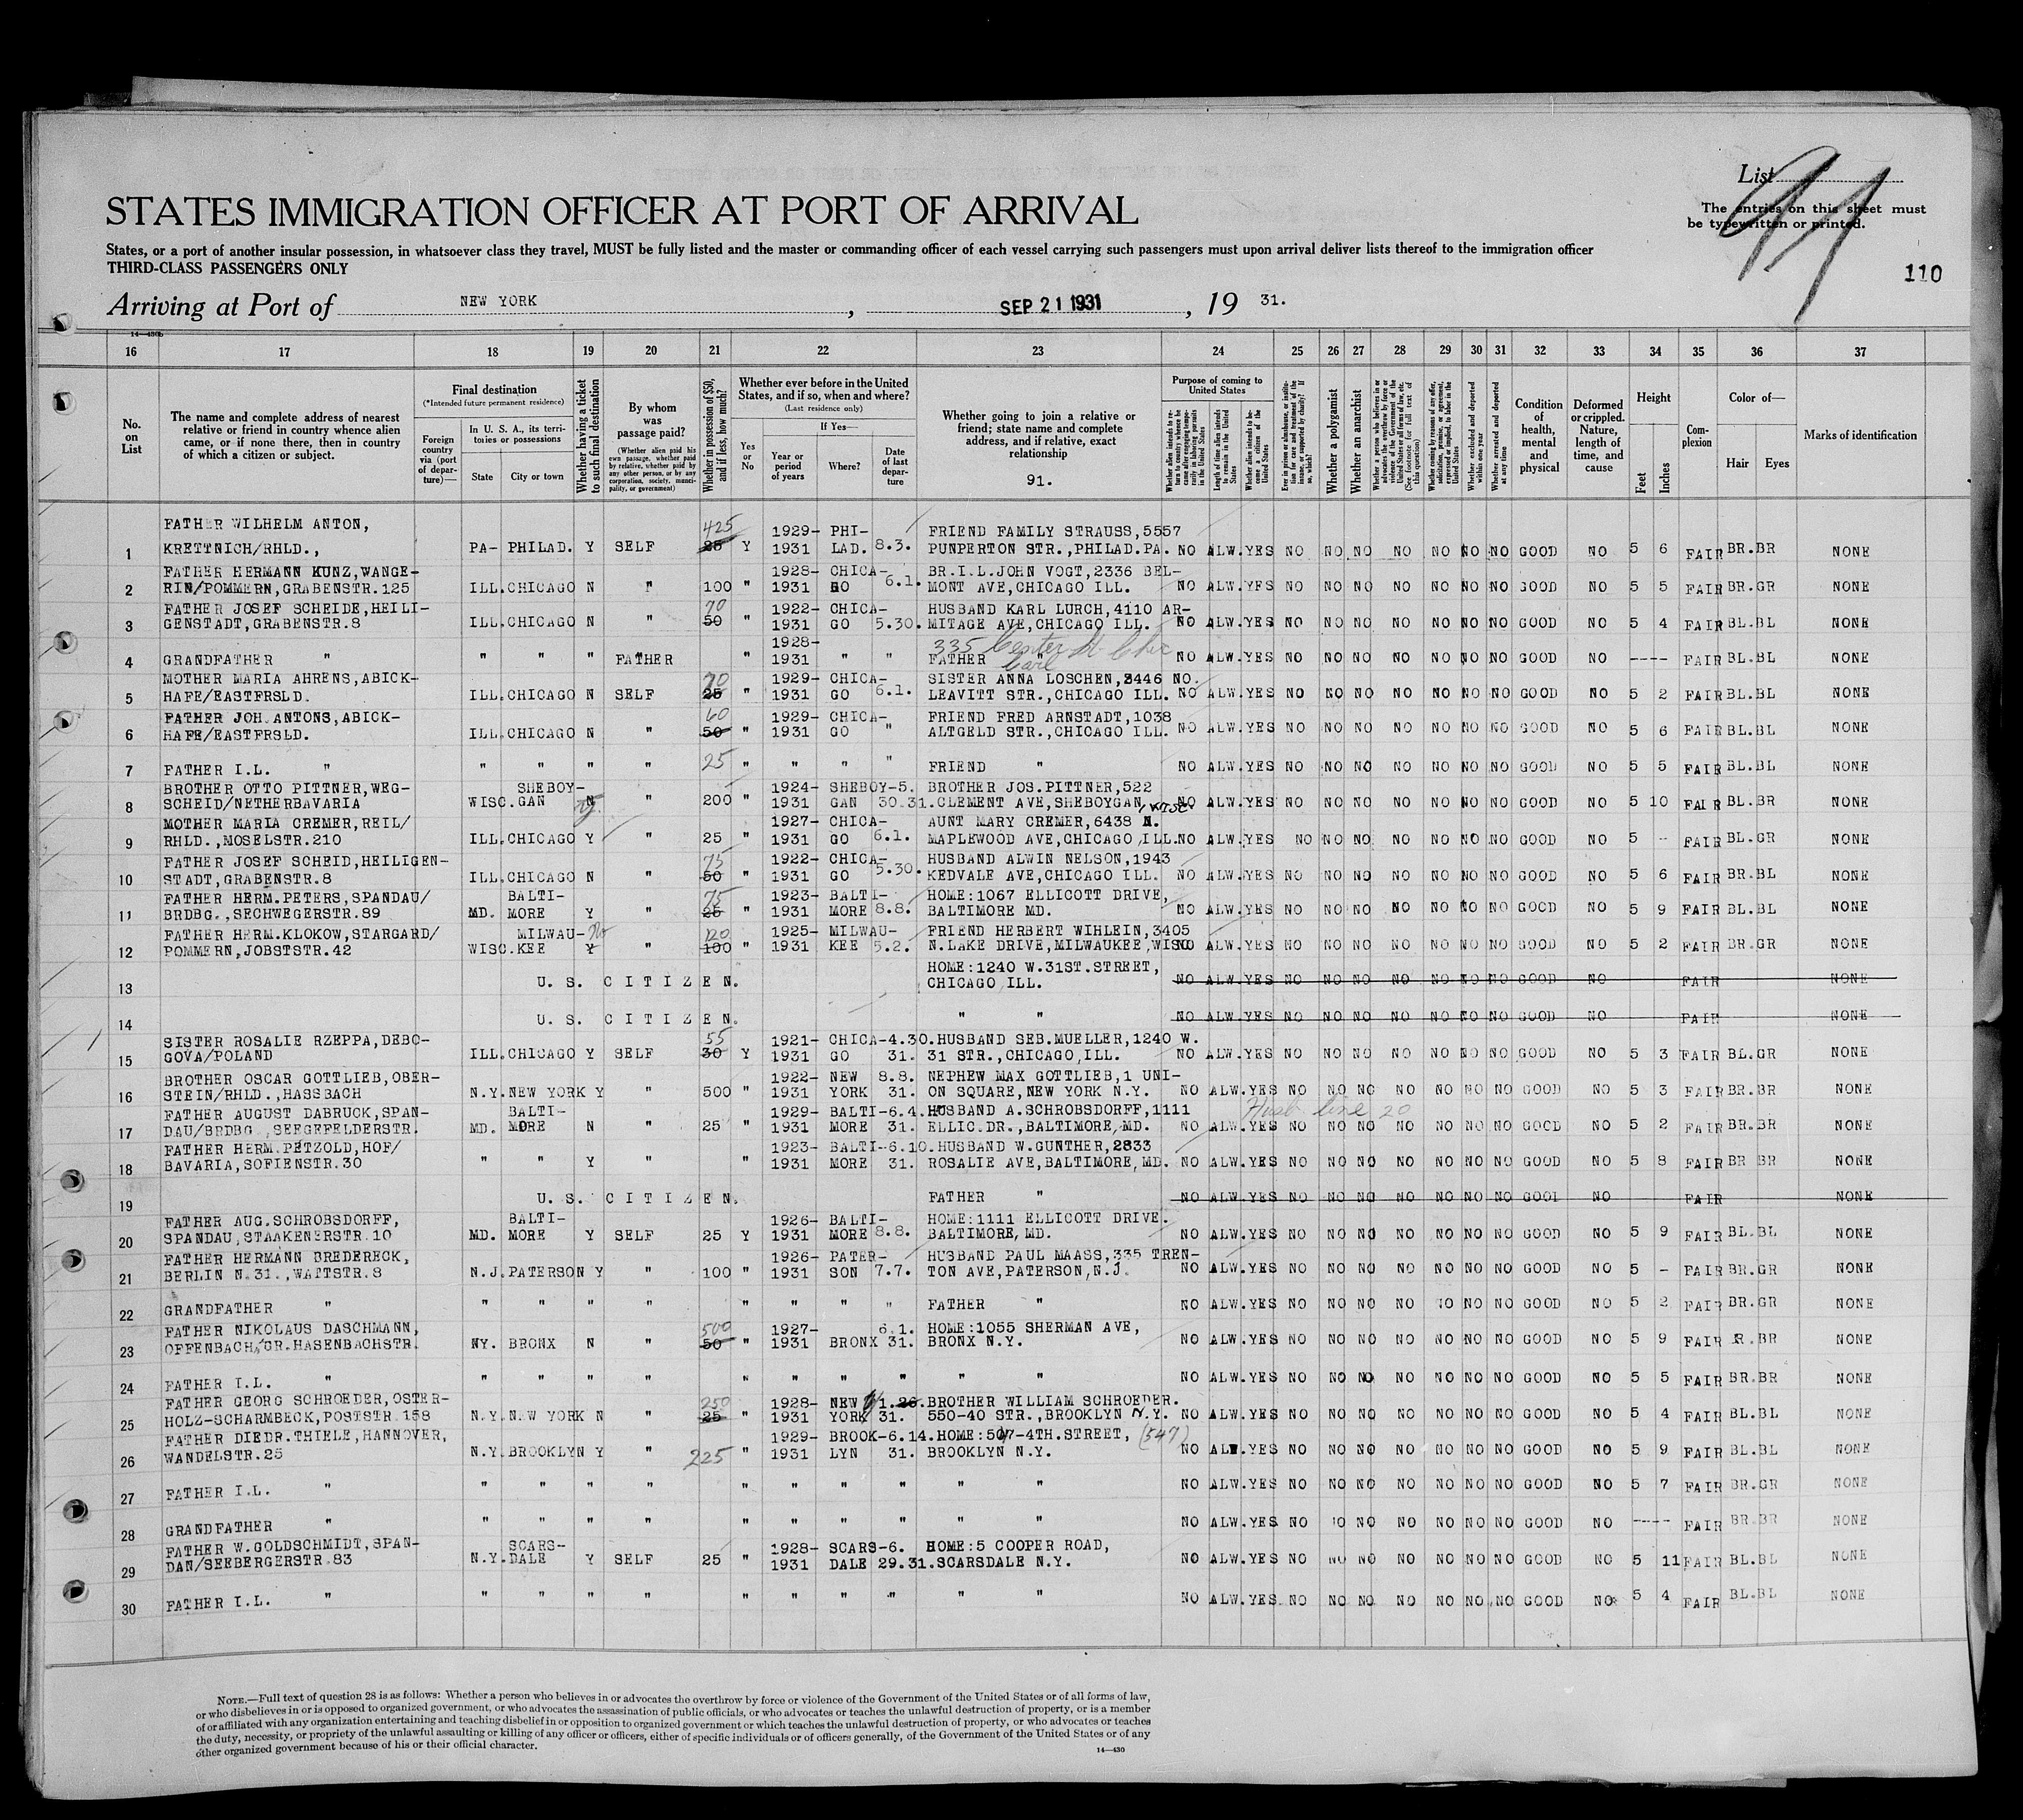 List
91
The entries on this sheet must
be typewritten or printed.
STATES IMMIGRATION OFFICER AT PORT OF ARRIVAL
States, or a port of another insular possession, in whatsoever class they travel, MUST be fully listed and the master or commanding officer of each vessel carrying such passengers must upon arrival deliver lists thereof to the immigration officer
THIRD-CLASS PASSENGERS ONLY
110
Arriving at Port of NEW YORK, SEP 21 1931, 19 31.
16 17 18 19 20 21 22 23 24 25 26 27 28 29 30 31 32 33 34 35 36 37
No. on List
The name and complete address of nearest relative or friend in country whence alien came, or if none there, then in country of which a citizen or subject.
Final destination
(*Intended future permanent residence)
Foreign country via (port of departure)—
In U. S. A., its territories or possessions
State City or town
Whether having a ticket to such final destination
By whom was passage paid?
(Whether alien paid his own passage, whether paid by relative, whether paid by any other person, or by any corporation, society, municipality, or government)
Whether in possession of $50, and if less, how much?
Whether ever before in the United States, and if so, when and where?
(Last residence only)
Yes or No
If Yes—
Year or period of years
Where?
Date of last departure
Whether going to join a relative or friend; state name and complete address, and if relative, exact relationship
91.
Purpose of coming to United States
Length of time alien intends to remain in the United States
Whether alien intends to become a citizen of the United States
Whether a polygamist
Whether an anarchist
Whether excluded and deported within one year
Whether arrested and deported at any time
Condition of health, mental and physical
Deformed or crippled. Nature, length of time, and cause
Height
Feet Inches
Complexion
Color of—
Hair Eyes
Marks of identification
1 FATHER WILHELM ANTON, KRETTNICH/RHLD., PA- PHILAD. Y SELF 25 425 Y 1929-1931 PHI-LAD. 8.3. FRIEND FAMILY STRAUSS,5557 PUNPERTON STR.,PHILAD.PA. NO ALW. YES NO NO NO NO NO NO NO GOOD NO 5 6 FAIR BR.BR NONE
2 FATHER HERMANN KUNZ,WANGE-RIN/POMMERN,GRABENSTR.125 ILL. CHICAGO N " 100 " 1928-1931 CHICA-GO 6.1. BR.I.L.JOHN VOGT,2336 BEL-MONT AVE,CHICAGO ILL. NO ALW. YES NO NO NO NO NO NO NO GOOD NO 5 5 FAIR BR.GR NONE
3 FATHER JOSEF SCHEIDE,HEILI-GENSTADT,GRABENSTR.8 ILL. CHICAGO N " 50 70 " 1922-1931 CHICA-GO 5.30. HUSBAND KARL LURCH,4110 AR-MITAGE AVE,CHICAGO ILL. NO ALW. YES NO NO NO NO NO NO NO GOOD NO 5 4 FAIR BL.BL NONE
4 GRANDFATHER " " " " FATHER " 1928-1931 " " 335 Center St Chic FATHER " NO ALW. YES NO NO NO NO NO NO NO GOOD NO ---- FAIR BL.BL NONE
5 MOTHER MARIA AHRENS,ABICK-HAFE/EASTFRSLD. ILL. CHICAGO N SELF 25 70 " 1929-1931 CHICA-GO 6.1. SISTER ANNA LOSCHEN,2446 NO. LEAVITT STR.,CHICAGO ILL. NO ALW. YES NO NO NO NO NO NO NO GOOD NO 5 2 FAIR BL.BL NONE
6 FATHER JOH.ANTONS,ABICK-HAFE/EASTFRSLD. ILL. CHICAGO N " 50 60 " 1929-1931 CHICA-GO " FRIEND FRED ARNSTADT,1038 ALTGELD STR.,CHICAGO ILL. NO ALW. YES NO NO NO NO NO NO NO GOOD NO 5 6 FAIR BL.BL NONE
7 FATHER I.L. " " " " " 25 " " " " FRIEND " NO ALW. YES NO NO NO NO NO NO NO GOOD NO 5 5 FAIR BL.BL NONE
8 BROTHER OTTO PITTNER,WEG-SCHEID/NETHERBAVARIA WISC. SHEBOY-GAN N " 200 " 1924-1931 SHEBOY-GAN 5.30.31. BROTHER JOS.PITTNER,522 CLEMENT AVE,SHEBOYGAN, WISC. NO ALW. YES NO NO NO NO NO NO NO GOOD NO 5 10 FAIR BL.BR NONE
9 MOTHER MARIA CREMER,REIL/RHLD.,MOSELSTR.210 ILL. CHICAGO Y " 25 " 1927-1931 CHICA-GO 6.1. AUNT MARY CREMER,6438 N. MAPLEWOOD AVE,CHICAGO,ILL. NO ALW. YES NO NO NO NO NO NO NO GOOD NO 5 - FAIR BL.GR NONE
10 FATHER JOSEF SCHEID,HEILIGEN-STADT,GRABENSTR.8 ILL. CHICAGO N " 50 75 " 1922-1931 CHICA-GO 5.30. HUSBAND ALWIN NELSON,1943 KEDVALE AVE,CHICAGO ILL. NO ALW. YES NO NO NO NO NO NO NO GOOD NO 5 6 FAIR BR.BL NONE
11 FATHER HERM.PETERS,SPANDAU/BRDBG.,SECHWEGERSTR.89 MD. BALTI-MORE Y " 25 75 " 1923-1931 BALTI-MORE 8.8. HOME:1067 ELLICOTT DRIVE, BALTIMORE MD. NO ALW. YES NO NO NO NO NO NO NO GOOD NO 5 9 FAIR BL.BL NONE
12 FATHER HERM.KLOKOW,STARGARD/POMMERN,JOBSTSTR.42 WISC. MILWAU-KEE Y No " 100 120 " 1925-1931 MILWAU-KEE 5.2. FRIEND HERBERT WIHLEIN,3405 N.LAKE DRIVE,MILWAUKEE,WISC. NO ALW. YES NO NO NO NO NO NO NO GOOD NO 5 2 FAIR BR.GR NONE
13 U. S. CITIZEN. HOME:1240 W.31ST.STREET, CHICAGO ILL. NO ALW. YES NO NO NO NO NO NO NO GOOD NO FAIR NONE
14 U. S. CITIZEN. " " NO ALW. YES NO NO NO NO NO NO NO GOOD NO FAIR NONE
15 SISTER ROSALIE RZEPPA,DEBO-GOVA/POLAND ILL. CHICAGO Y SELF 30 55 Y 1921-1931 CHICA-GO 4.30.31. HUSBAND SEB.MUELLER,1240 W. 31 STR.,CHICAGO,ILL. NO ALW. YES NO NO NO NO NO NO NO GOOD NO 5 3 FAIR BL.GR NONE
16 BROTHER OSCAR GOTTLIEB,OBER-STEIN/RHLD.,HASSBACH N.Y. NEW YORK Y " 500 " 1922-1931 NEW YORK 8.8.31. NEPHEW MAX GOTTLIEB,1 UNI-ON SQUARE,NEW YORK N.Y. NO ALW. YES NO NO NO NO NO NO NO GOOD NO 5 3 FAIR BR.BR NONE
17 FATHER AUGUST DABRUCK,SPAN-DAU/BRDBG.,SEEGEFELDERSTR. MD. BALTI-MORE N " 25 " 1929-1931 BALTI-MORE 6.4.31. HUSBAND A.SCHROBSDORFF,1111 ELLIC.DR.,BALTIMORE,MD. Husb line 20 NO ALW. YES NO NO NO NO NO NO NO GOOD NO 5 2 FAIR BR.BR NONE
18 FATHER HERM.PETZOLD,HOF/BAVARIA,SOFIENSTR.30 " " Y " " 1923-1931 BALTI-MORE 6.10.31. HUSBAND W.GUNTHER,2833 ROSALIE AVE,BALTIMORE,MD. NO ALW. YES NO NO NO NO NO NO NO GOOD NO 5 8 FAIR BR BR NONE
19 U. S. CITIZEN. FATHER " NO ALW. YES NO NO NO NO NO NO NO GOOD NO FAIR NONE
20 FATHER AUG.SCHROBSDORFF, SPANDAU,STAAKENERSTR.10 MD. BALTI-MORE Y SELF 25 Y 1926-1931 BALTI-MORE 8.8. HOME:1111 ELLICOTT DRIVE. BALTIMORE,MD. NO ALW. YES NO NO NO NO NO NO NO GOOD NO 5 9 FAIR BL.BL NONE
21 FATHER HERMANN BREDERECK, BERLIN N.31.,WATTSTR.8 N.J. PATERSON Y " 100 " 1926-1931 PATER-SON 7.7. HUSBAND PAUL MAASS,335 TREN-TON AVE,PATERSON,N.J. NO ALW. YES NO NO NO NO NO NO NO GOOD NO 5 - FAIR BR.GR NONE
22 GRANDFATHER " " " " " " " " " FATHER " NO ALW. YES NO NO NO NO NO NO NO GOOD NO 5 2 FAIR BR.GR NONE
23 FATHER NIKOLAUS DASCHMANN, OFFENBACH,GR.HASENBACHSTR. NY. BRONX N " 50 500 " 1927-1931 BRONX 6.1.31. HOME:1055 SHERMAN AVE, BRONX N.Y. NO ALW. YES NO NO NO NO NO NO NO GOOD NO 5 9 FAIR R.BR NONE
24 FATHER I.L. " " " " " " " " " " " NO ALW. YES NO NO NO NO NO NO NO GOOD NO 5 5 FAIR BR.BR NONE
25 FATHER GEORG SCHROEDER,OSTER-HOLZ-SCHARMBECK,POSTSTR.158 N.Y. NEW YORK N " 25 250 " 1928-1931 NEW YORK 31. BROTHER WILLIAM SCHROEDER. 550-40 STR.,BROOKLYN N.Y. NO ALW. YES NO NO NO NO NO NO NO GOOD NO 5 4 FAIR BL.BL NONE
26 FATHER DIEDR.THIELE,HANNOVER, WANDELSTR.25 N.Y. BROOKLYN Y " 225 " 1929-1931 BROOK-LYN 6.14.31. HOME:507-4TH.STREET, (547) BROOKLYN N.Y. NO ALW. YES NO NO NO NO NO NO NO GOOD NO 5 9 FAIR BL.BL NONE
27 FATHER I.L. " " " " " " " " " " " NO ALW. YES NO NO NO NO NO NO NO GOOD NO 5 7 FAIR BR.GR NONE
28 GRANDFATHER " " " " " " " " " " " NO ALW. YES NO NO NO NO NO NO NO GOOD NO ---- FAIR BR.BR NONE
29 FATHER W.GOLDSCHMIDT,SPAN-DAN/SEEBERGERSTR.83 N.Y. SCARS-DALE Y SELF 25 " 1928-1931 SCARS-DALE 6.29.31. HOME:5 COOPER ROAD, SCARSDALE N.Y. NO ALW. YES NO NO NO NO NO NO NO GOOD NO 5 11 FAIR BL.BL NONE
30 FATHER I.L. " " " " " " " " " " " NO ALW. YES NO NO NO NO NO NO NO GOOD NO 5 4 FAIR BL.BL NONE
NOTE.—Full text of question 28 is as follows: Whether a person who believes in or advocates the overthrow by force or violence of the Government of the United States or of all forms of law,
or who disbelieves in or is opposed to organized government, or who advocates the assassination of public officials, or who advocates or teaches the unlawful destruction of property, or is a member
of or affiliated with any organization entertaining and teaching disbelief in or opposition to organized government or which teaches the unlawful destruction of property, or who advocates or teaches
the duty, necessity, or propriety of the unlawful assaulting or killing of any officer or officers, either of specific individuals or of officers generally, of the Government of the United States or of any
other organized government because of his or their official character.
14—430